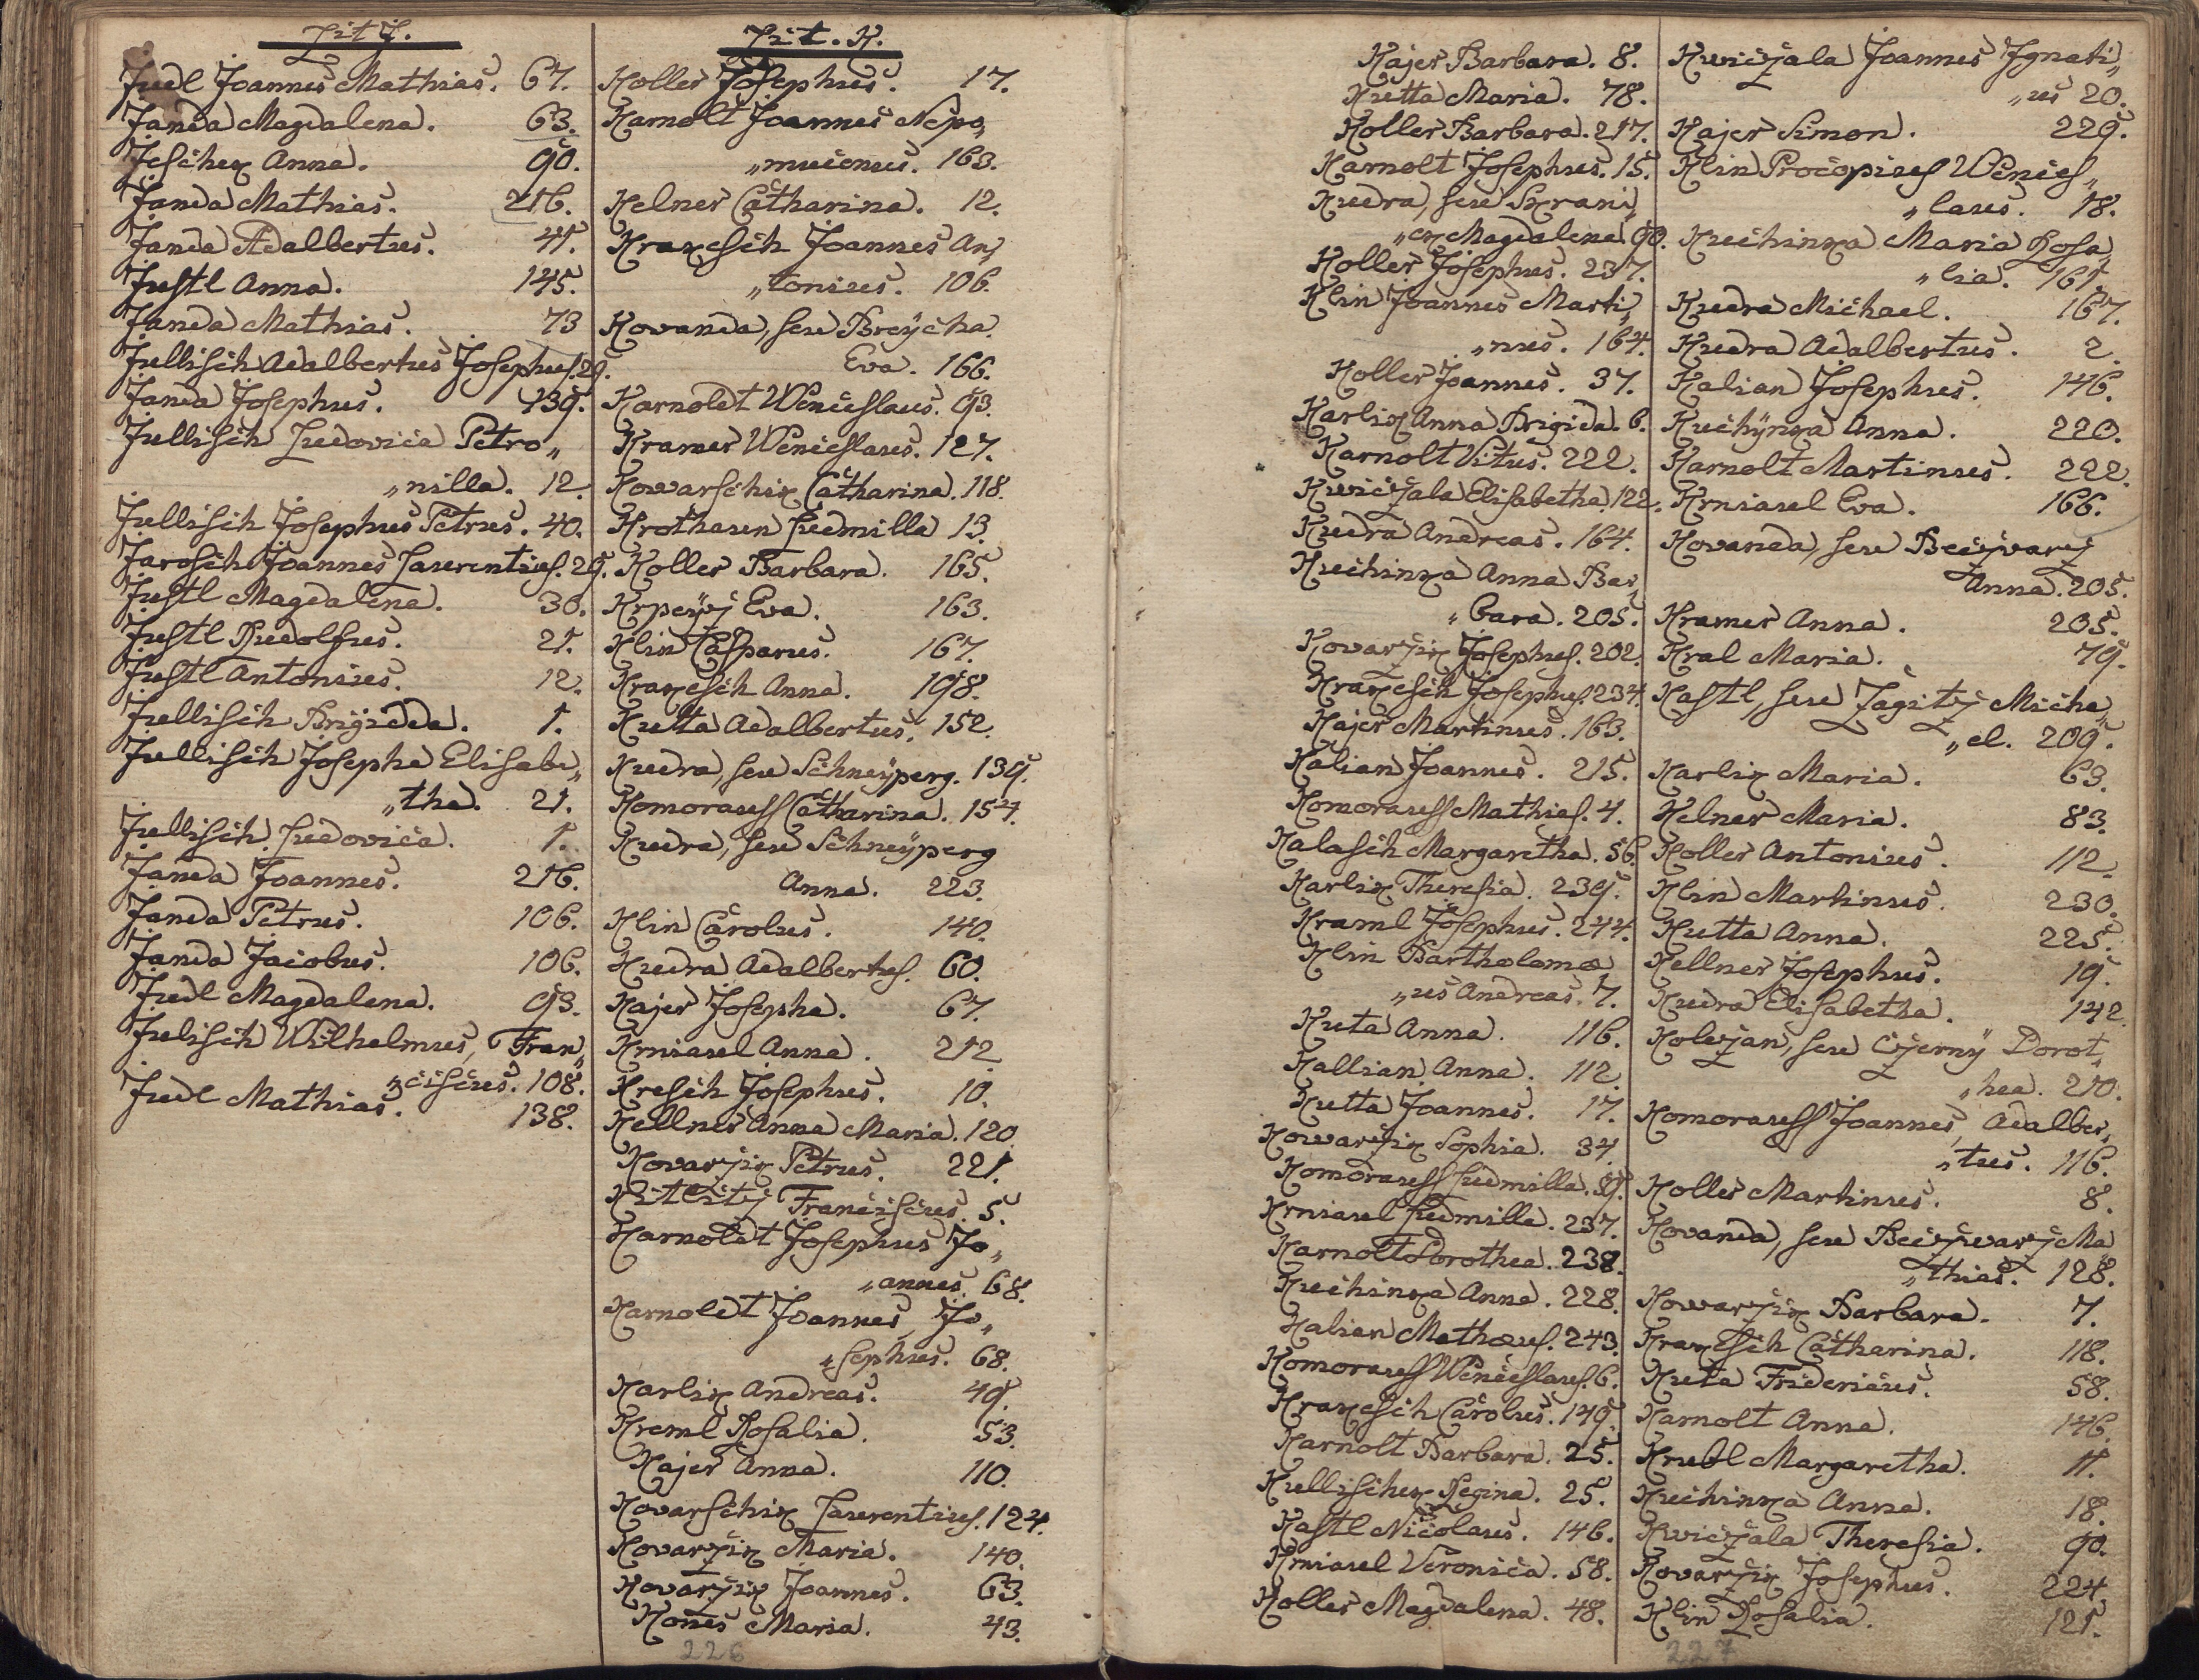 Lit J.
Judl Joannes Mathias. 67.
Janda Magdalena. 63.
Jeschek Anna. 90.
Janda Mathias. 216.
Janda Adalbertus. 41.
Justl Anna. 145.
Janda Mathias. 73
Jullisch Adalbertus Josephus. 29.
Janda Josephus. 139.
Jullisch Ludovica Petro„
„nilla. 12.
Jullisch Josephus Petrus. 40.
Jarosch Joannes Laurentius. 29.
Justl Magdalena. 30.
Justl Rudolfus. 21.
Justl Antonius. 12.
Jullisch Brigidda. 1.
Jullisch Josepha Elisabe„
„tha. 21.
Jullisch Ludovica. 1.
Janda Joannes. 216.
Janda Petrus. 106.
Janda Jacobus. 106.
Judl Magdalena. 93.
Julisch Wilhelmus, Fran„
„ciscus. 108.
Judl Mathias. 138.
Lit. K.
Koller Josephus. 17.
Karnolt Joannes Nepo„
„mucenus. 163.
Kelner Catharina. 12.
Krakesch Joannes An„
„tonius. 106.
Kovanda, seu Breÿcha
Eva. 166.
Karnoldt Wenceslaus. 93.
Kramer Wenceslaus. 127.
Kowarschik Catharina. 118.
Krothauen Ludmilla 13.
Koller Barbara. 165.
Krpeÿj Eva. 163.
Klin Casparus. 167.
Krakesch Anna. 198.
Kutta Adalbertus. 152.
Kudra, seu Schneÿperg. 139.
Komorauss Catharina. 154.
Kudra, seu Schneÿperg
Anna. 223.
Klin Carolus. 140.
Kudra Adalbertus. 60.
Kajer Josepha. 67.
Krniaul Anna. 212
Kresch Josephus. 10.
Kellner Anna Maria. 120.
Kovarzik Petrus. 221.
Kitlitz Franciscus. 5.
Karnoldt Josephus Jo„
„annes. 68.
Karnoldt Joannes Jo„
„sephus. 68.
Karlik Andreas. 49.
Kreml Rosalia. 53.
Kajer Anna. 110.
Kovarschik Laurentius. 124.
Kovarzik Maria. 140.
Kovarzik Joannes. 63.
Kones Maria. 43.
226
Kajer Barbara. 8.
Kutta Maria. 78.
Koller Barbara. 217.
Karnolt Josephus. 15.
Kudra, seu Skrani„
„ck Magdalena. 90.
Koller Josephus. 237.
Klin Joannes Marti„
„nus. 164.
Koller Joannes. 37.
Karlik Anna Brigida. 6.
Karnolt Vitus. 222.
Kwiczala Elisabetha. 122.
Kudra Andreas. 164.
Kuchinka Anna Bar„
„bara. 205.
Kovarzik Josephus. 202.
Krakesch Josephus. 234.
Kajer Martinus. 163.
Kalian Joannes. 215.
Komorauss Mathias. 4.
Kalasch Margaretha. 56.
Karlik Theresia. 239.
Kraml Josephus. 244.
Klin Bartholomæ
„us Andreas. 7.
Kuta Anna. 116.
Kallian Anna. 112.
Kutta Joannes. 17.
Kowarzik Sophia. 34.
Komorauss Ludmilla. 39.
Krniaul Ludmilla. 237.
Karnolt Dorothea. 238.
Kuchinka Anna. 228.
Kalian Mathæus. 243.
Komorauss Wenceslaus. 6.
Krakesch Carolus. 149.
Karnolt Barbara. 25.
Kullischek Regina. 25.
Kastl Nicolaus. 146.
Krniaul Veronica. 58.
Koller Magdalena. 48.
Kwiczala Joannes Ignati„
„us 20.
Kajer Simon. 229.
Klin Procopius Wences„
„laus. 18.
Kuchinka Maria Rosa„
„lia. 161.
Kudra Michael. 167.
Kudra Adalbertus. 2.
Kalian Josephus. 146.
Kuchÿnka Anna. 220.
Karnolt Martinus. 222.
Krniaul Eva. 166.
Kovanda, seu Beczvarz
Anna. 205.
Kramer Anna. 205.
Kral Maria. 79.
Kastl, seu Zagitz Micha„
„el. 209.
Karlik Maria. 63.
Kelner Maria. 83.
Koller Antonius. 112.
Klin Martinus. 230.
Kutta Anna. 225.
Kellner Josephus. 19.
Kudra Elisabetha. 142.
Kolezan, seu Czernÿ Dorot„
„hea. 210.
Komorauss Joannes, Adalber„
„tus. 116.
Koller Martinus. 8.
Kovanda, seu Beczwarz Ma„
„thias. 128.
Kowarzik Barbara. 7.
Krakesch Catharina. 118.
Kuta Fridericus. 58.
Karnolt Anna. 146.
Krubl Margaretha. 11.
Kuchinka Anna. 18.
Kwiczala Theresia. 90.
Kovarzik Josephus. 224.
Klin Rosalia. 121.
227